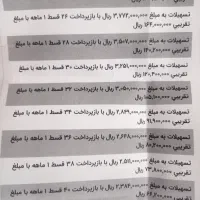 تسهیلات به مبلغ ۳,۷۷۲,۰۰۰,۰۰۰ ریال با بازپرداخت ۲۶ قسط ۱ ماهه با مبلغ
تقریبی ۱۶۴,۰۰۰,۰۰۰ ریال
تسهیلات به مبلغ ۳,۵۰۷,۰۰۰,۰۰۰ ریال با بازپرداخت ۲۸ قسط ۱ ماهه با مبلغ
تقریبی ریال
تسهیلات به مبلغ ۳,۲۵۱,۰۰۰,۰۰۰ ریال با بازپرداخت ۳۰ قسط ۱ ماهه با مبلغ
تقریبی ریال
تسهیلات به مبلغ ۳,۰۵۰,۰۰۰,۰۰۰ ریال با بازپرداخت ۳۲ قسط ۱ ماهه با مبلغ
تقریبی ریال
تسهیلات به مبلغ ۲,۸۴۹,۰۰۰,۰۰۰ ریال با بازپرداخت ۳۴ قسط ۱ ماهه با مبلغ
تقریبی ۹۱,۹۰۰,۰۰۰ ریال
تسهیلات به مبلغ ۲,۶۴۸,۰۰۰,۰۰۰ ریال با بازپرداخت ۳۶ قسط ۱ ماهه با مبلغ
تقریبی ریال
تسهیلات به مبلغ ۲,۵۱۱,۰۰۰,۰۰۰ ریال با بازپرداخت ۳۸ قسط ۱ ماهه با مبلغ
تقریبی ۷۳,۸۰۰,۰۰۰ ریال
تسهیلات به مبلغ ۲,۳۸۴,۰۰۰,۰۰۰ ریال با بازپرداخت ۴۰ قسط ۱ ماهه با مبلغ
ریال